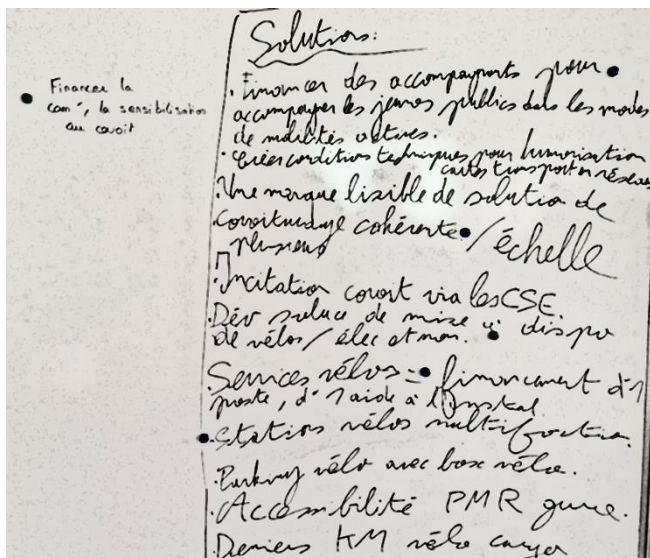 Financer la
com°, la sensibilisation
au covoit
Solutions:
. Financer des accompagnants pour
accompagner les jeunes publics dans les modes
de mobilités actives.
. Créer conditions techniques pour
cartes transport en réseaux
. Une marque lisible de solution de
covoiturage cohérente / échelle
plusieurs
. Incitation covoit via les CSE.
. Dév de mise à dispo
de vélos / élec et non.
. Services vélos = financement d'1
poste, d'1 aide à l'instal.
. Stations vélos multifonction.
. Parking vélo avec box vélo.
. Accessibilité PMR gare.
. Derniers KM vélo cargo